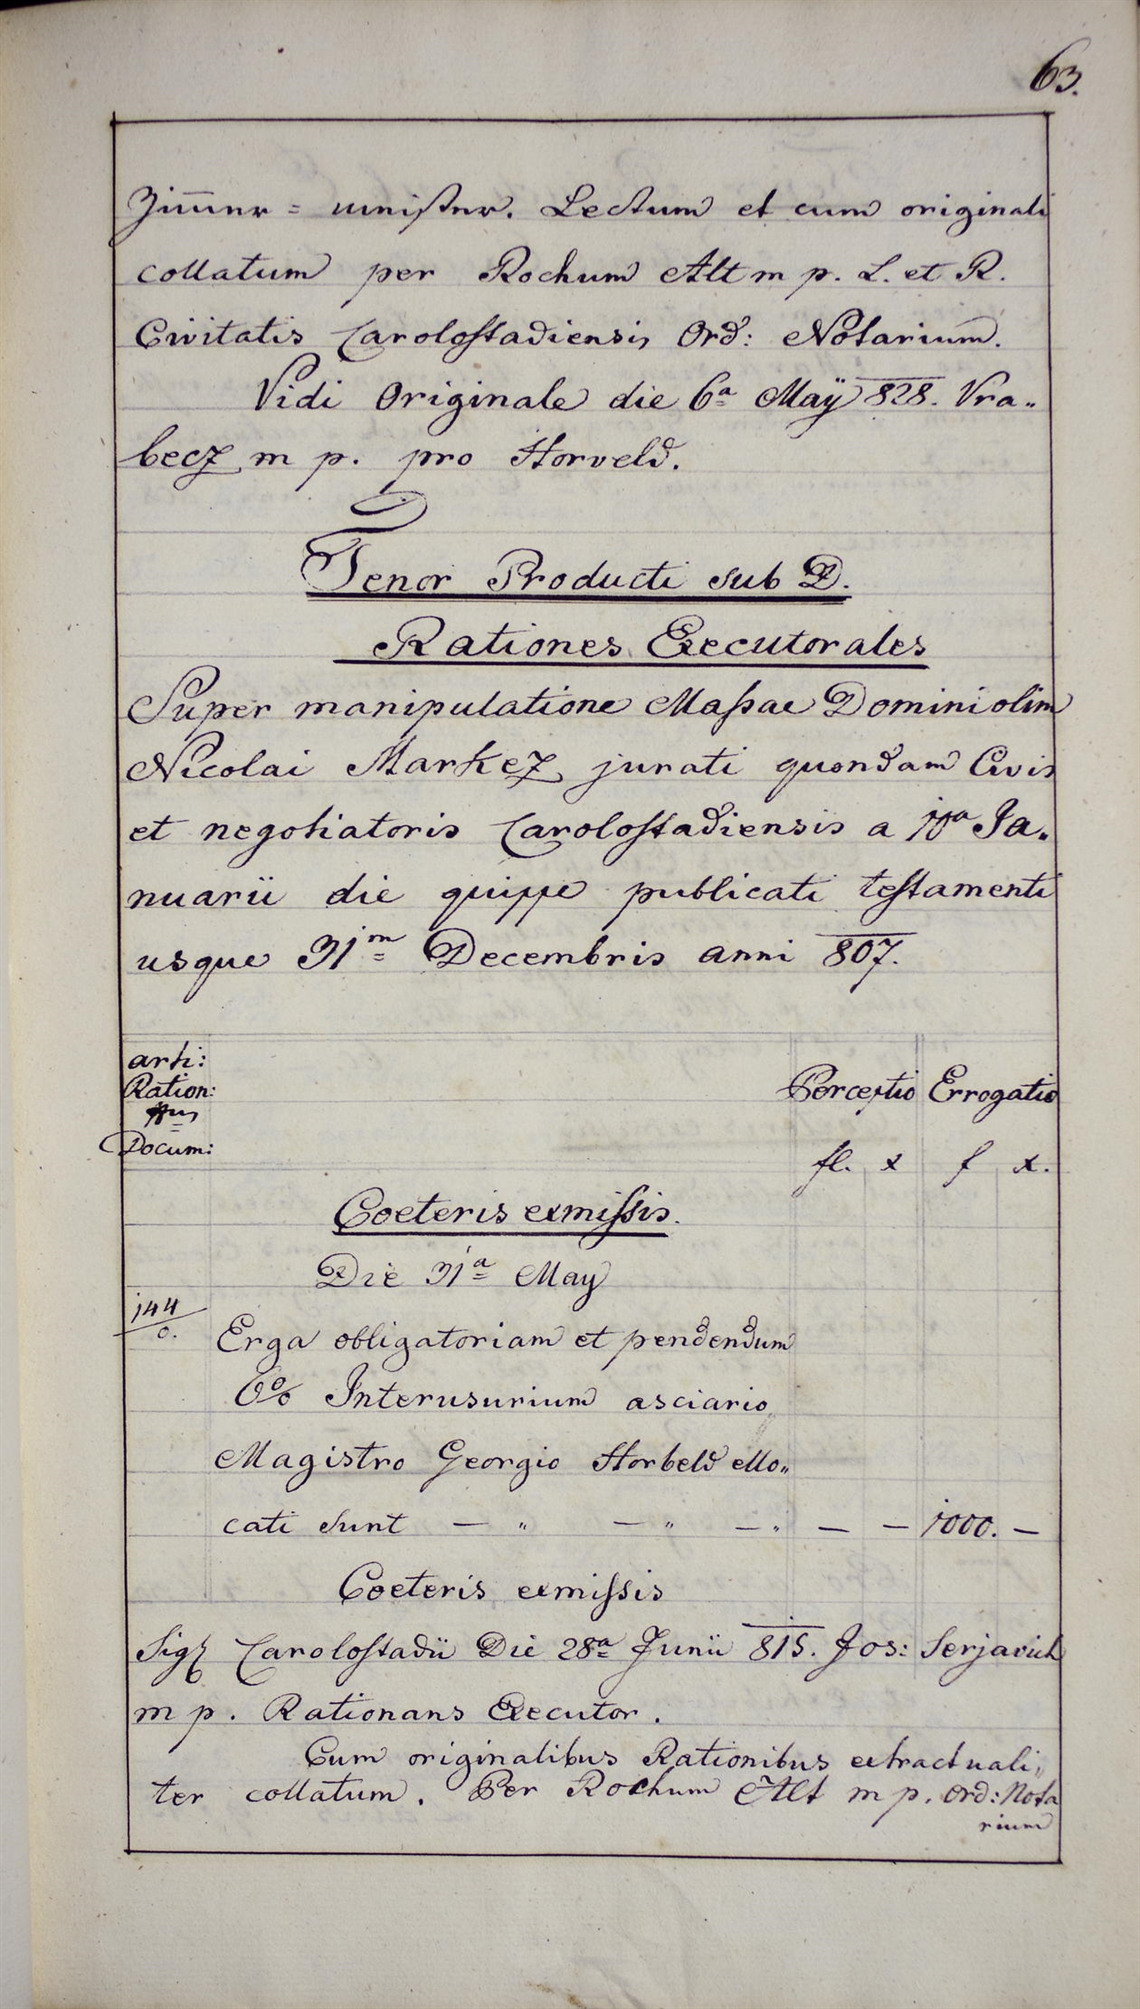 63.
Zim̄er = meister. Lectum et cum originali
collatum per Rochum Alt m p. L. et R.
Civitatis Carolostadiensis Ord: Notarium.
Vidi Originale die 6a Maÿ 828. Vra„
becz m p. pro Horveld.
Tenor Producti sub D.
Rationes Executorales
Super manipulatione Massae Domini olim
Nicolai Markez jurati quondam Civis
et negotiatoris Carolostadiensis a Ja„
nuarii die quippe publicati testamenti
usque 31m Decembris anni 807.
arti:
Ration: Perceptio Errogatio
Docum:
fl. x f x.
Coeteris exmissis.
Die 31a May
144
0.
Erga obligatoriam et pendendum
6% Interusurium asciario
Magistro Georgio Horbeld ello„
cati sunt — „ — „ — „ — — 1000. —
Coeteris exmissis
Sigl Carolostadii Die 28a Junii 815. Jos: Serjavich
m p. Rationans Executor.
Cum originalibus Rationibus extractuali„
ter collatum. Per Rochum Alt m p. Ord: Nota
rium